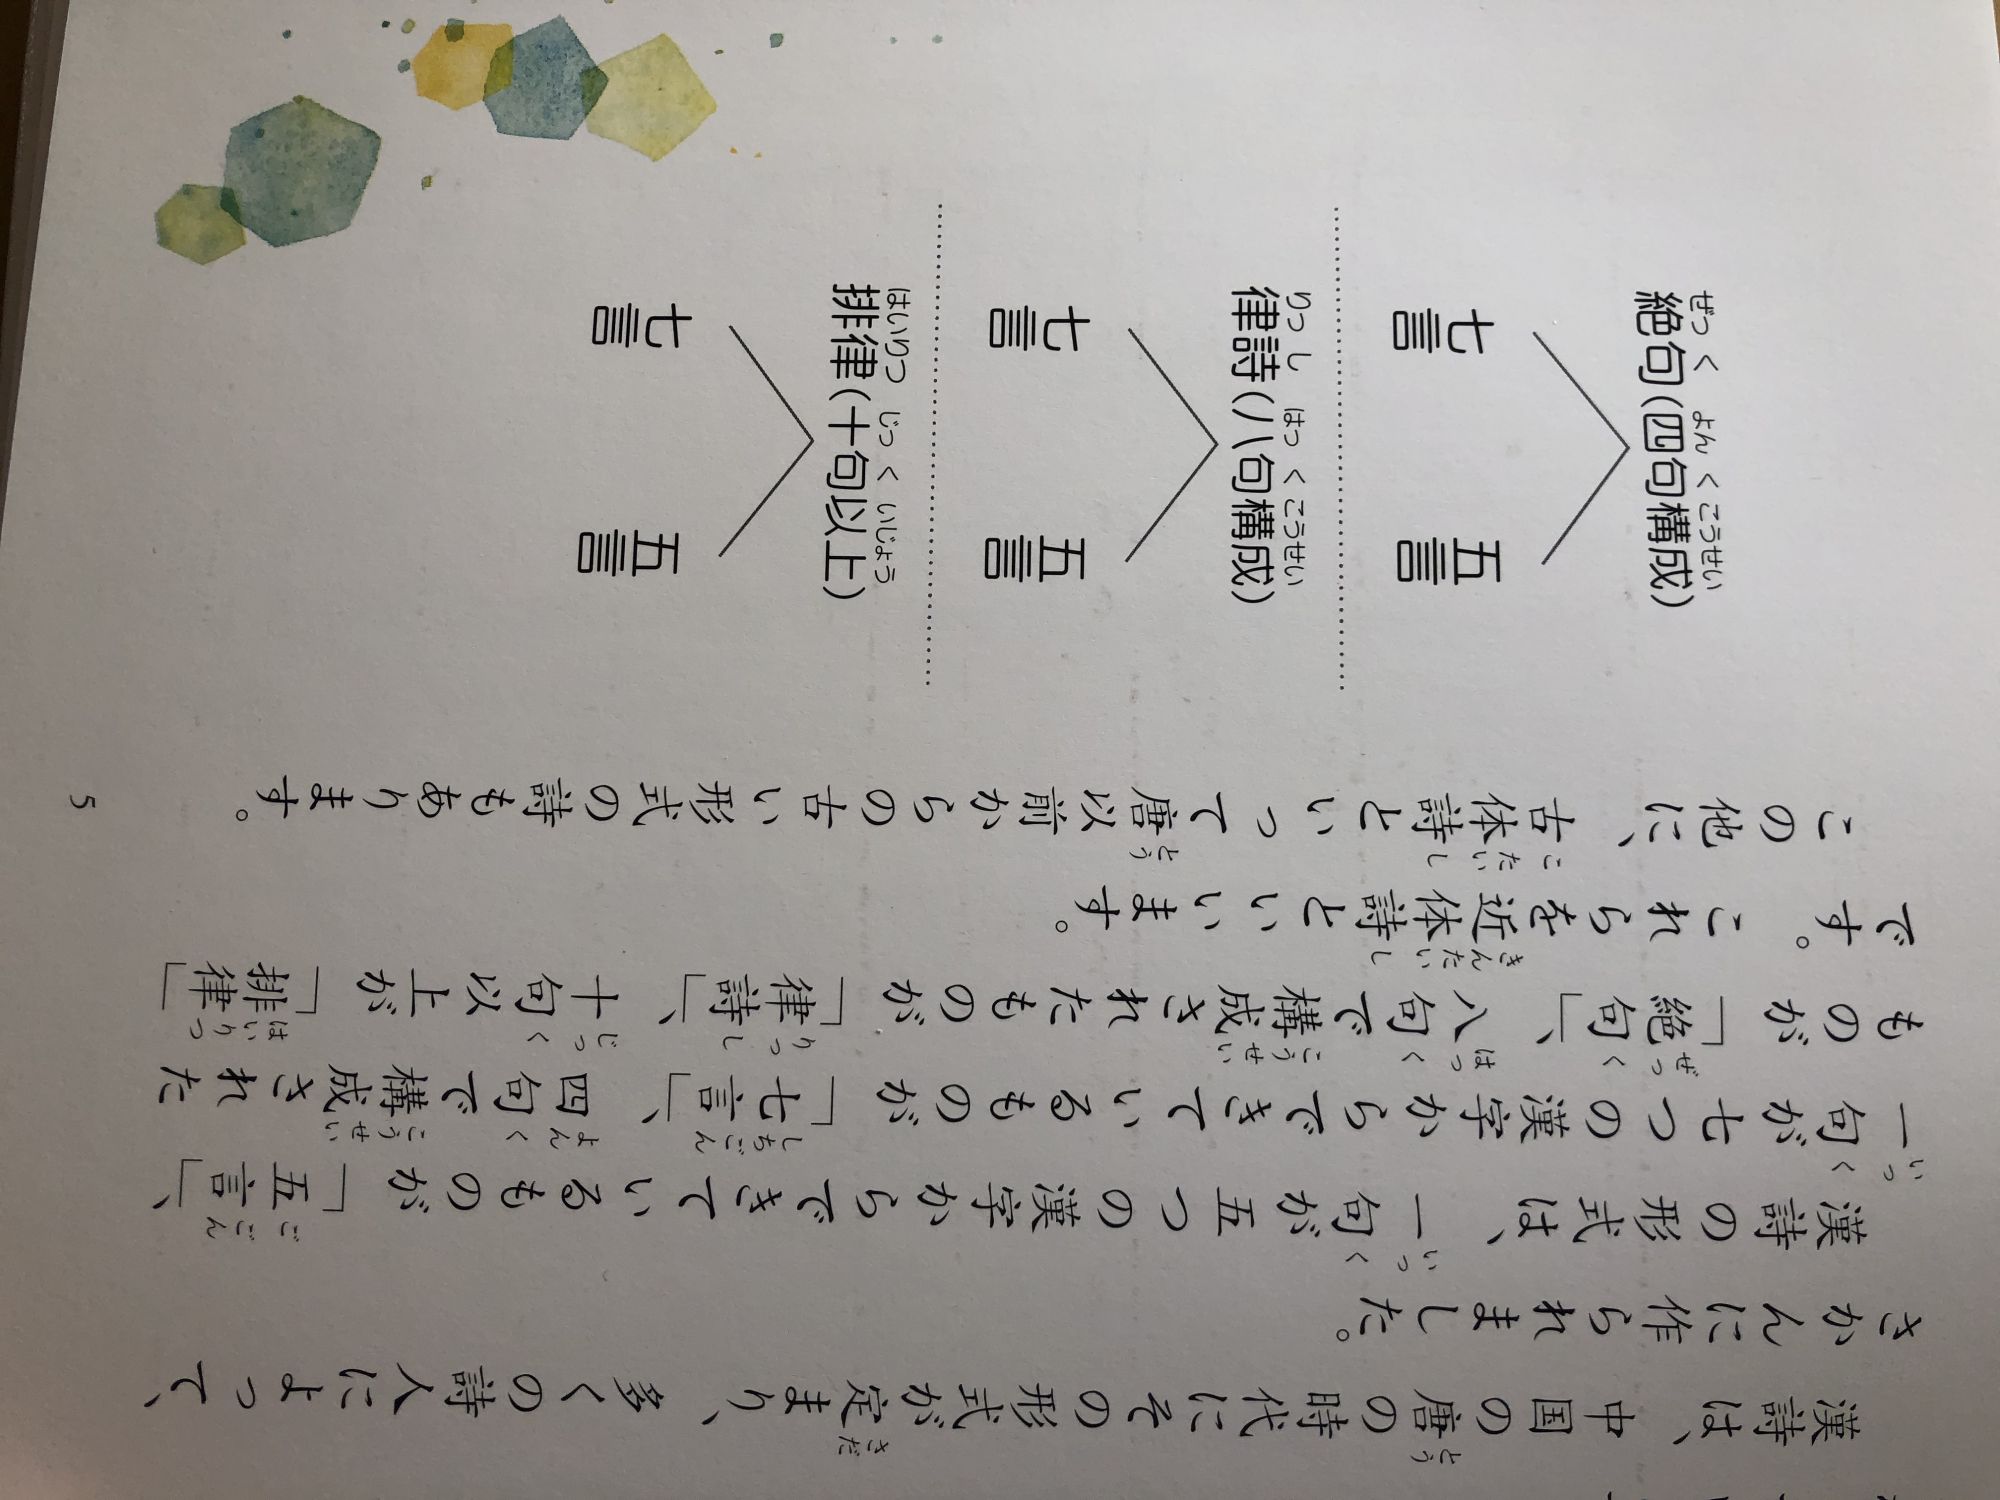 漢詩は、中国の唐の時代にその形式が定まり、多くの詩人によって、
さかんに作られました。
漢詩の形式は、一句が五つの漢字からできているものが「五言」、
一句が七つの漢字からできているものが「七言」、四句で構成された
ものが「絶句」、八句で構成されたものが「律詩」、十句以上が「排律」
です。これらを近体詩といいます。
この他に、古体詩といって唐以前からの古い形式の詩もあります。
絶句(四句構成)
五言
七言
律詩(八句構成)
五言
七言
排律(十句以上)
五言
七言
5